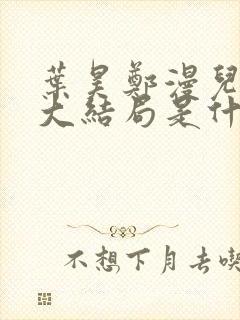 葉昊鄭漫兒
大結局是什
不想下月去喫